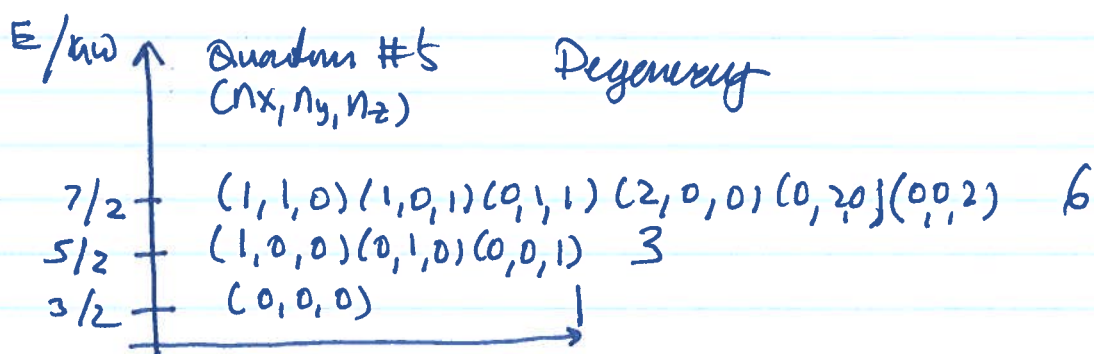 E/ħω Quantum #s Degeneracy
(nx, ny, nz)
7/2 (1,1,0) (1,0,1) (0,1,1) (2,0,0) (0,2,0) (0,0,2) 6
5/2 (1,0,0) (0,1,0) (0,0,1) 3
3/2 (0,0,0) 1